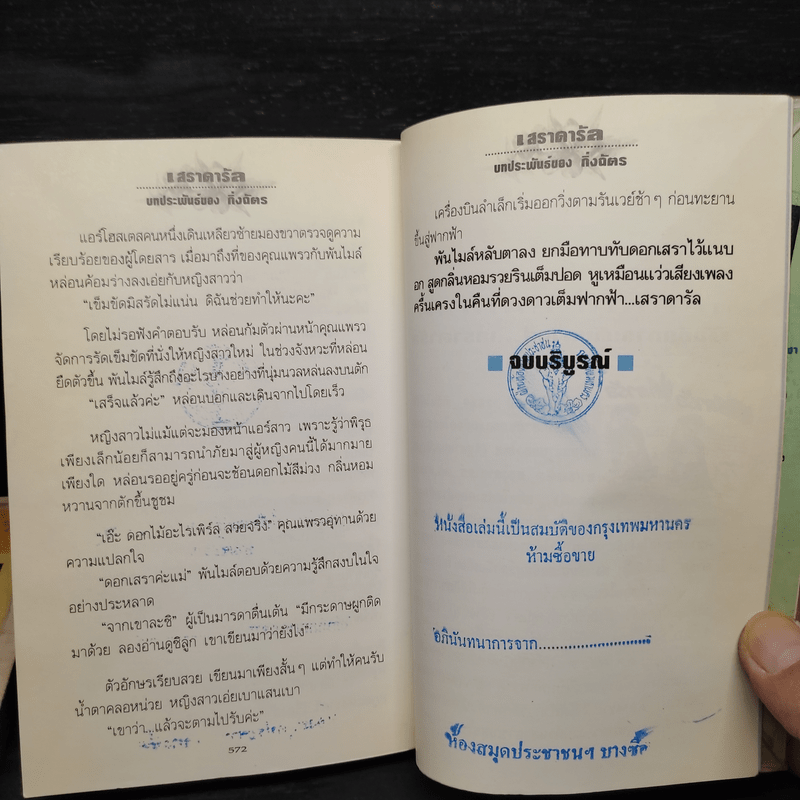 เสราดารัล
บทประพันธ์ของ กิ่งฉัตร
แอร์โฮสเตสคนหนึ่งเดินเหลียวซ้ายมองขวาตรวจดูความ
เรียบร้อยของผู้โดยสาร เมื่อมาถึงที่ของคุณแพรวกับพันไมล์
หล่อนค้อมร่างลงเอ่ยกับหญิงสาวว่า
“เข็มขัดมิสรัดไม่แน่น ดิฉันช่วยทำให้นะคะ”
โดยไม่รอฟังคำตอบรับ หล่อนก้มตัวผ่านหน้าคุณแพรว
จัดการรัดเข็มขัดที่นั่งให้หญิงสาวใหม่ ในช่วงจังหวะที่หล่อน
ยืดตัวขึ้น พันไมล์รู้สึกถึงอะไรบางอย่างที่นุ่มนวลหล่นลงบนตัก
“เสร็จแล้วค่ะ” หล่อนบอกและเดินจากไปโดยเร็ว
หญิงสาวไม่แม้แต่จะมองหน้าแอร์สาว เพราะรู้ว่าพิรุธ
เพียงเล็กน้อยก็สามารถนำภัยมาสู่ผู้หญิงคนนี้ได้มากมาย
เพียงใด หล่อนรออยู่ครู่ก่อนจะช้อนดอกไม้สีม่วง กลิ่นหอม
หวานจากตักขึ้นชูชม
“เอ๊ะ ดอกไม้อะไรเพิร์ล สวยจริง” คุณแพรวอุทานด้วย
ความแปลกใจ
“ดอกเสราค่ะแม่” พันไมล์ตอบด้วยความรู้สึกสงบในใจ
อย่างประหลาด
“จากเขาละซิ” ผู้เป็นมารดาตื่นเต้น “มีกระดาษผูกติด
มาด้วย ลองอ่านดูซิลูก เขาเขียนมาว่ายังไง”
ตัวอักษรเรียบสวย เขียนมาเพียงสั้นๆ แต่ทำให้คนรับ
น้ำตาคลอหน่วย หญิงสาวเอ่ยเบาแสนเบา
“เขาว่า...แล้วจะตามไปรับค่ะ”
572
เสราดารัล
บทประพันธ์ของ กิ่งฉัตร
เครื่องบินลำเล็กเริ่มออกวิ่งตามรันเวย์ช้าๆ ก่อนทะยาน
ขึ้นสู่ฟากฟ้า
พันไมล์หลับตาลง ยกมือทาบทับดอกเสราไว้แนบ
อก สูดกลิ่นหอมรวยรินเต็มปอด หูเหมือนแว่วเสียงเพลง
ครื้นเครงในคืนที่ดวงดาวเต็มฟากฟ้า...เสราดารัล
จบบริบูรณ์
หนังสือเล่มนี้เป็นสมบัติของกรุงเทพมหานคร
ห้ามซื้อขาย
อภินันทนาการจาก..........................
ห้องสมุดประชาชนฯ บางซื่อ